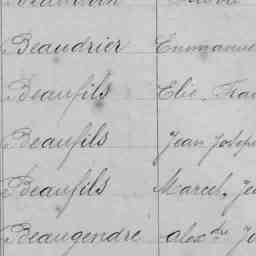 Beaudrier Emmanue
Beaufils Elie, Fra
Beaufils Jean Josep
Beaufils Marcel, Je
Beaugendre Alexdre Jo